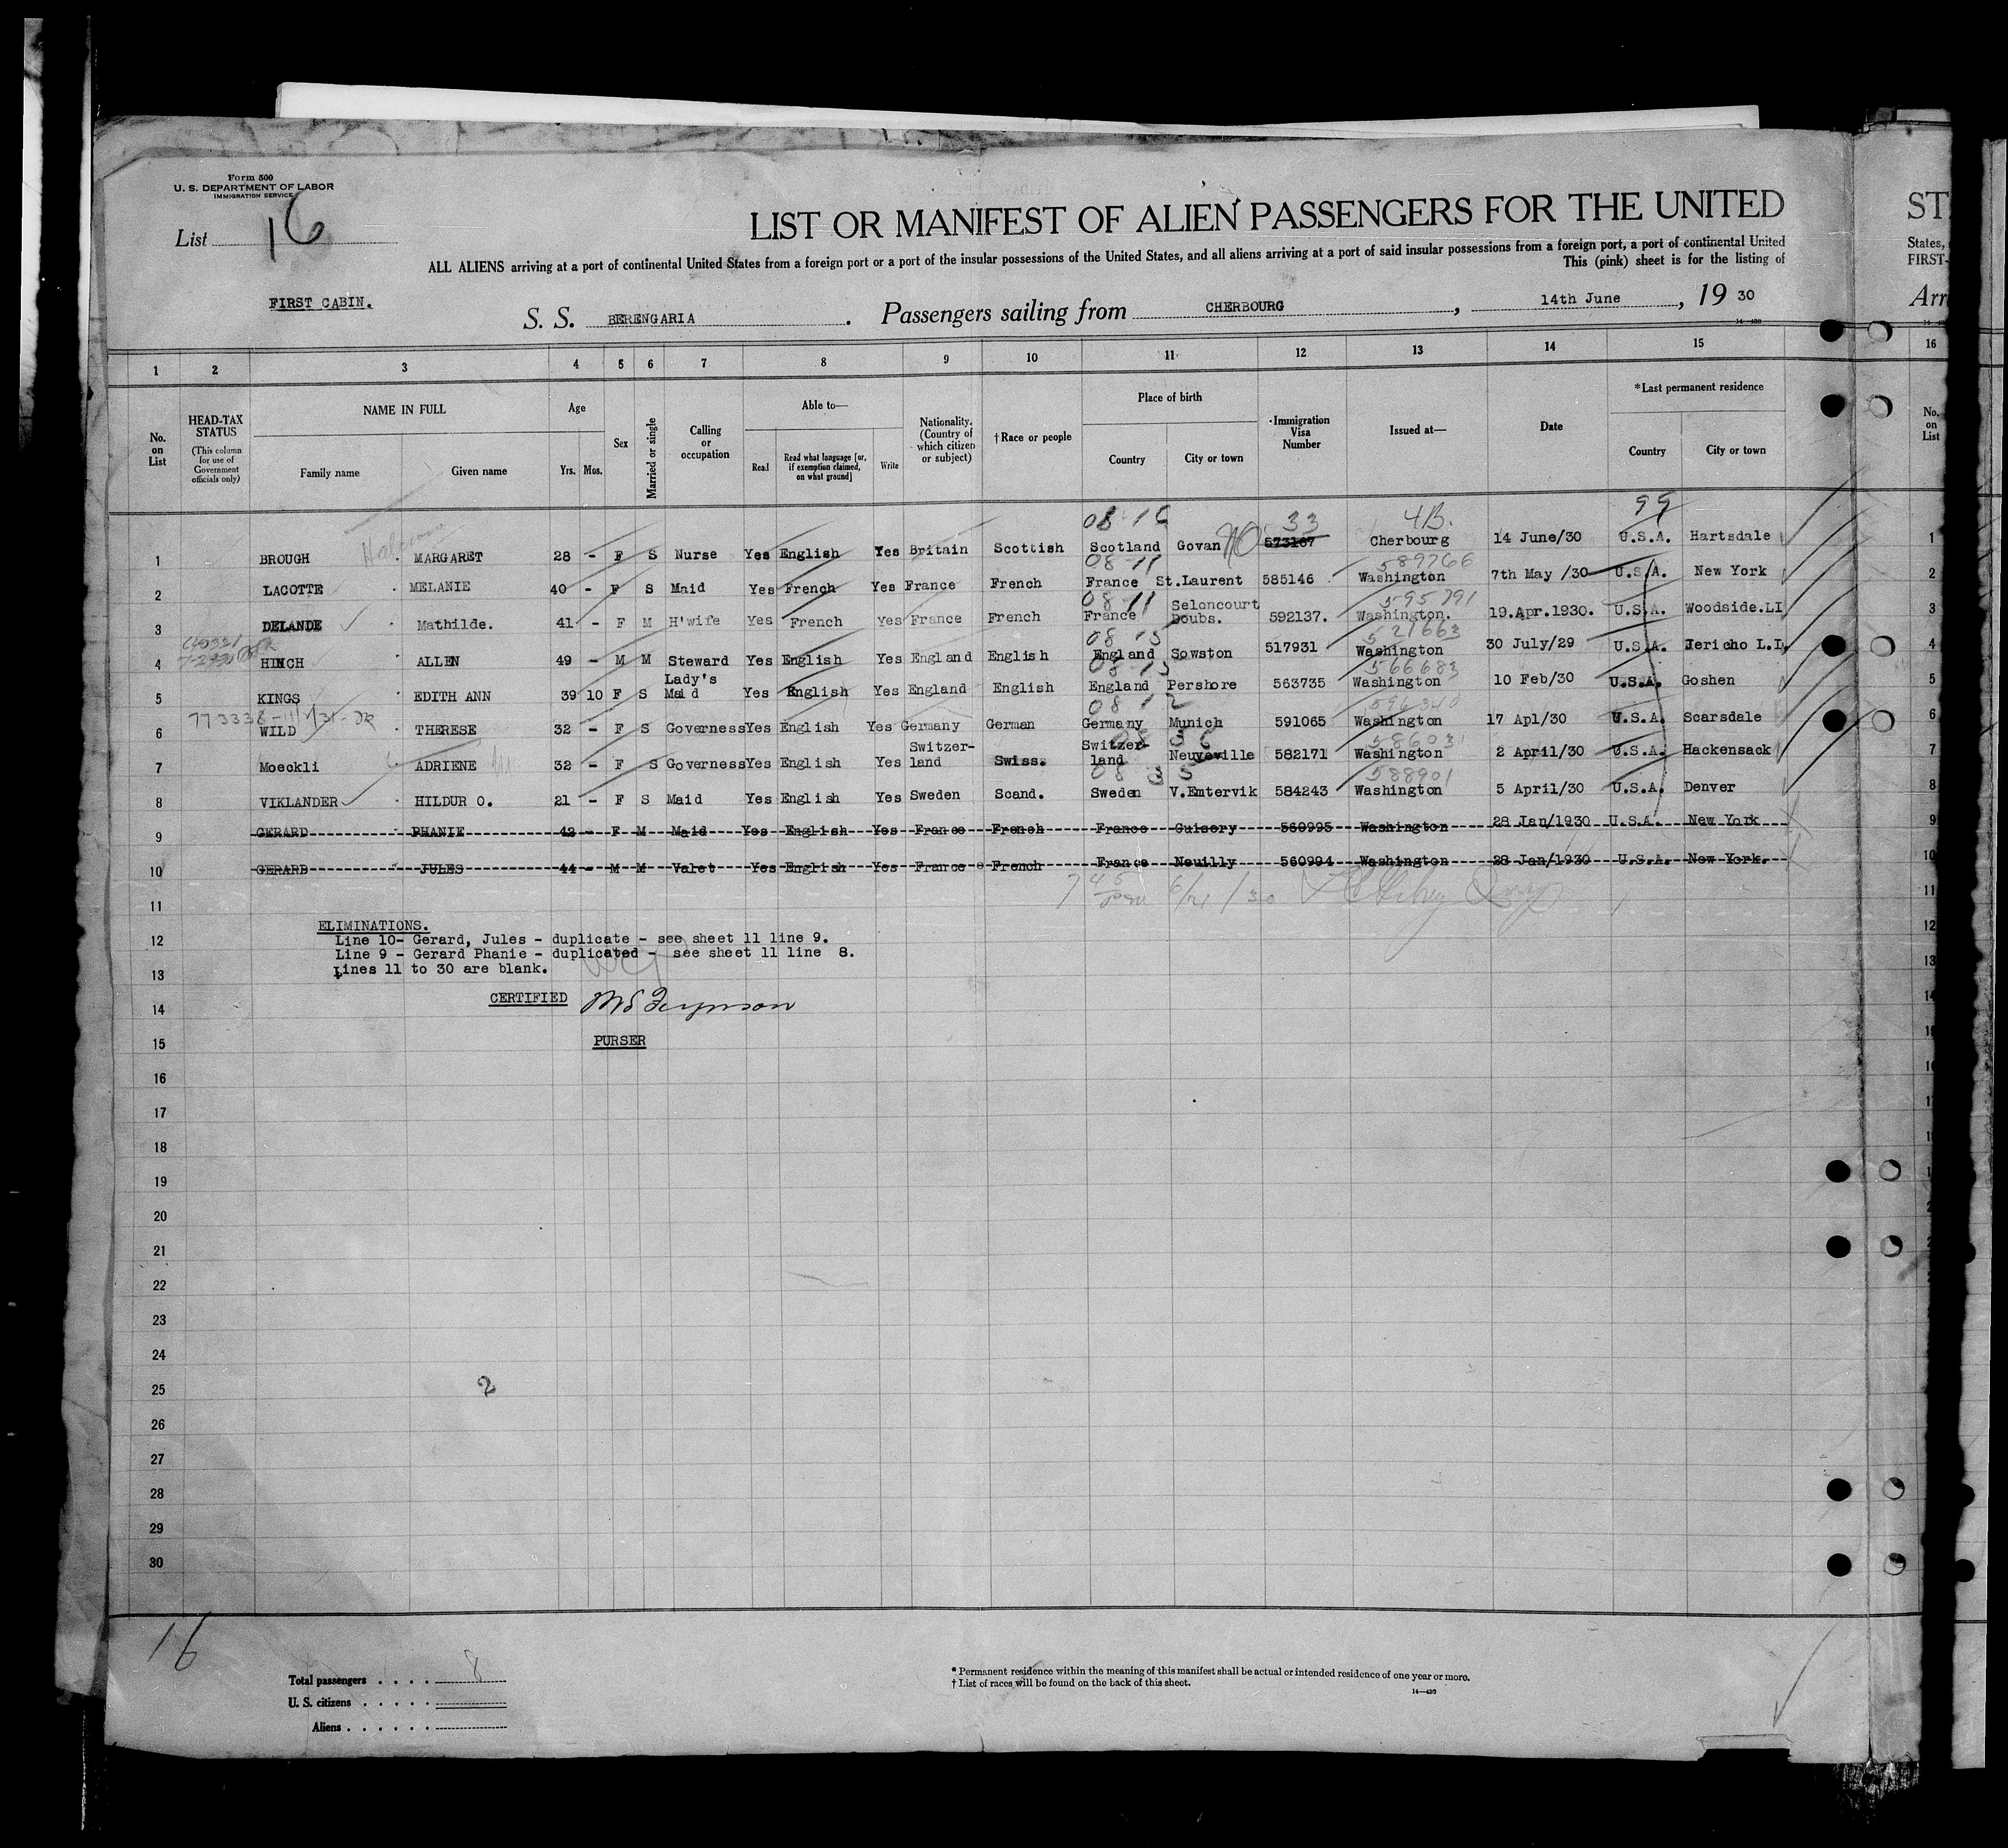 Form 500
U. S. DEPARTMENT OF LABOR
IMMIGRATION SERVICE
List 16
LIST OR MANIFEST OF ALIEN PASSENGERS FOR THE UNITED
ST
ALL ALIENS arriving at a port of continental United States from a foreign port or a port of the insular possessions of the United States, and all aliens arriving at a port of said insular possessions from a foreign port, a port of continental United
States,
This (pink) sheet is for the listing of
FIRST-
FIRST CABIN.
S. S. BERENGARIA. Passengers sailing from CHERBOURG, 14th June, 19 30
Arr
1 2 3 4 5 6 7 8 9 10 11 12 13 14 15 16
No. on List
HEAD-TAX STATUS
(This column for use of Government officials only)
NAME IN FULL
Family name Given name
Age
Yrs. Mos.
Sex
Married or single
Calling or occupation
Able to—
Read
Read what language [or, if exemption claimed, on what ground]
Write
Nationality. (Country of which citizen or subject)
†Race or people
Place of birth
Country City or town
Immigration Visa Number
Issued at—
Date
*Last permanent residence
Country City or town
No. on List
08-16 33 4B. 99
1 BROUGH MARGARET 28 - F S Nurse Yes English Yes Britain Scottish Scotland Govan 573167 Cherbourg 14 June/30 U.S.A. Hartsdale 1
08-11 589766
2 LACOTTE MELANIE 40 - F S Maid Yes French Yes France French France St.Laurent 585146 Washington 7th May /30 U.S.A. New York 2
08-11 595791
3 DELANDE Mathilde. 41 - F M H'wife Yes French Yes France French France Seloncourt Doubs. 592137. Washington. 19.Apr.1930. U.S.A. Woodside.LI 3
08 15 521663
4 HINCH ALLEN 49 - M M Steward Yes English Yes England English England Sowston 517931 Washington 30 July/29 U.S.A. Jericho L.I. 4
08 15 566683
5 KINGS EDITH ANN 39 10 F S Lady's Maid Yes English Yes England English England Pershore 563735 Washington 10 Feb/30 U.S.A. Goshen 5
08 12 596340
6 WILD THERESE 32 - F S Governess Yes English Yes Germany German Germany Munich 591065 Washington 17 Apl/30 U.S.A. Scarsdale 6
08 36
7 Moeckli ADRIENE 32 - F S Governess Yes English Yes Switzer-land Swiss. Switzer-land Neuveville 582171 Washington 2 April/30 U.S.A. Hackensack 7
08 35 588901
8 VIKLANDER HILDUR O. 21 - F S Maid Yes English Yes Sweden Scand. Sweden V.Emtervik 584243 Washington 5 April/30 U.S.A. Denver 8
9 GERARD PHANIE 42 - F M Maid Yes English Yes France French France Cuisery 560995 Washington 28 Jan/1930 U.S.A. New York 9
10 GERARD JULES 44 - M M Valet Yes English Yes France French France Neuilly 560994 Washington 28 Jan/1930 U.S.A. New York. 10
11 11
ELIMINATIONS.
12 Line 10- Gerard, Jules - duplicate - see sheet 11 line 9. 12
Line 9 - Gerard Phanie - duplicated - see sheet 11 line 8.
13 Lines 11 to 30 are blank. 13
14 CERTIFIED
15 PURSER
16
17
18
19
20
21
22
23
24
25 2
26
27
28
29
30
16
Total passengers 8
U. S. citizens
Aliens
* Permanent residence within the meaning of this manifest shall be actual or intended residence of one year or more.
† List of races will be found on the back of this sheet.
14—430